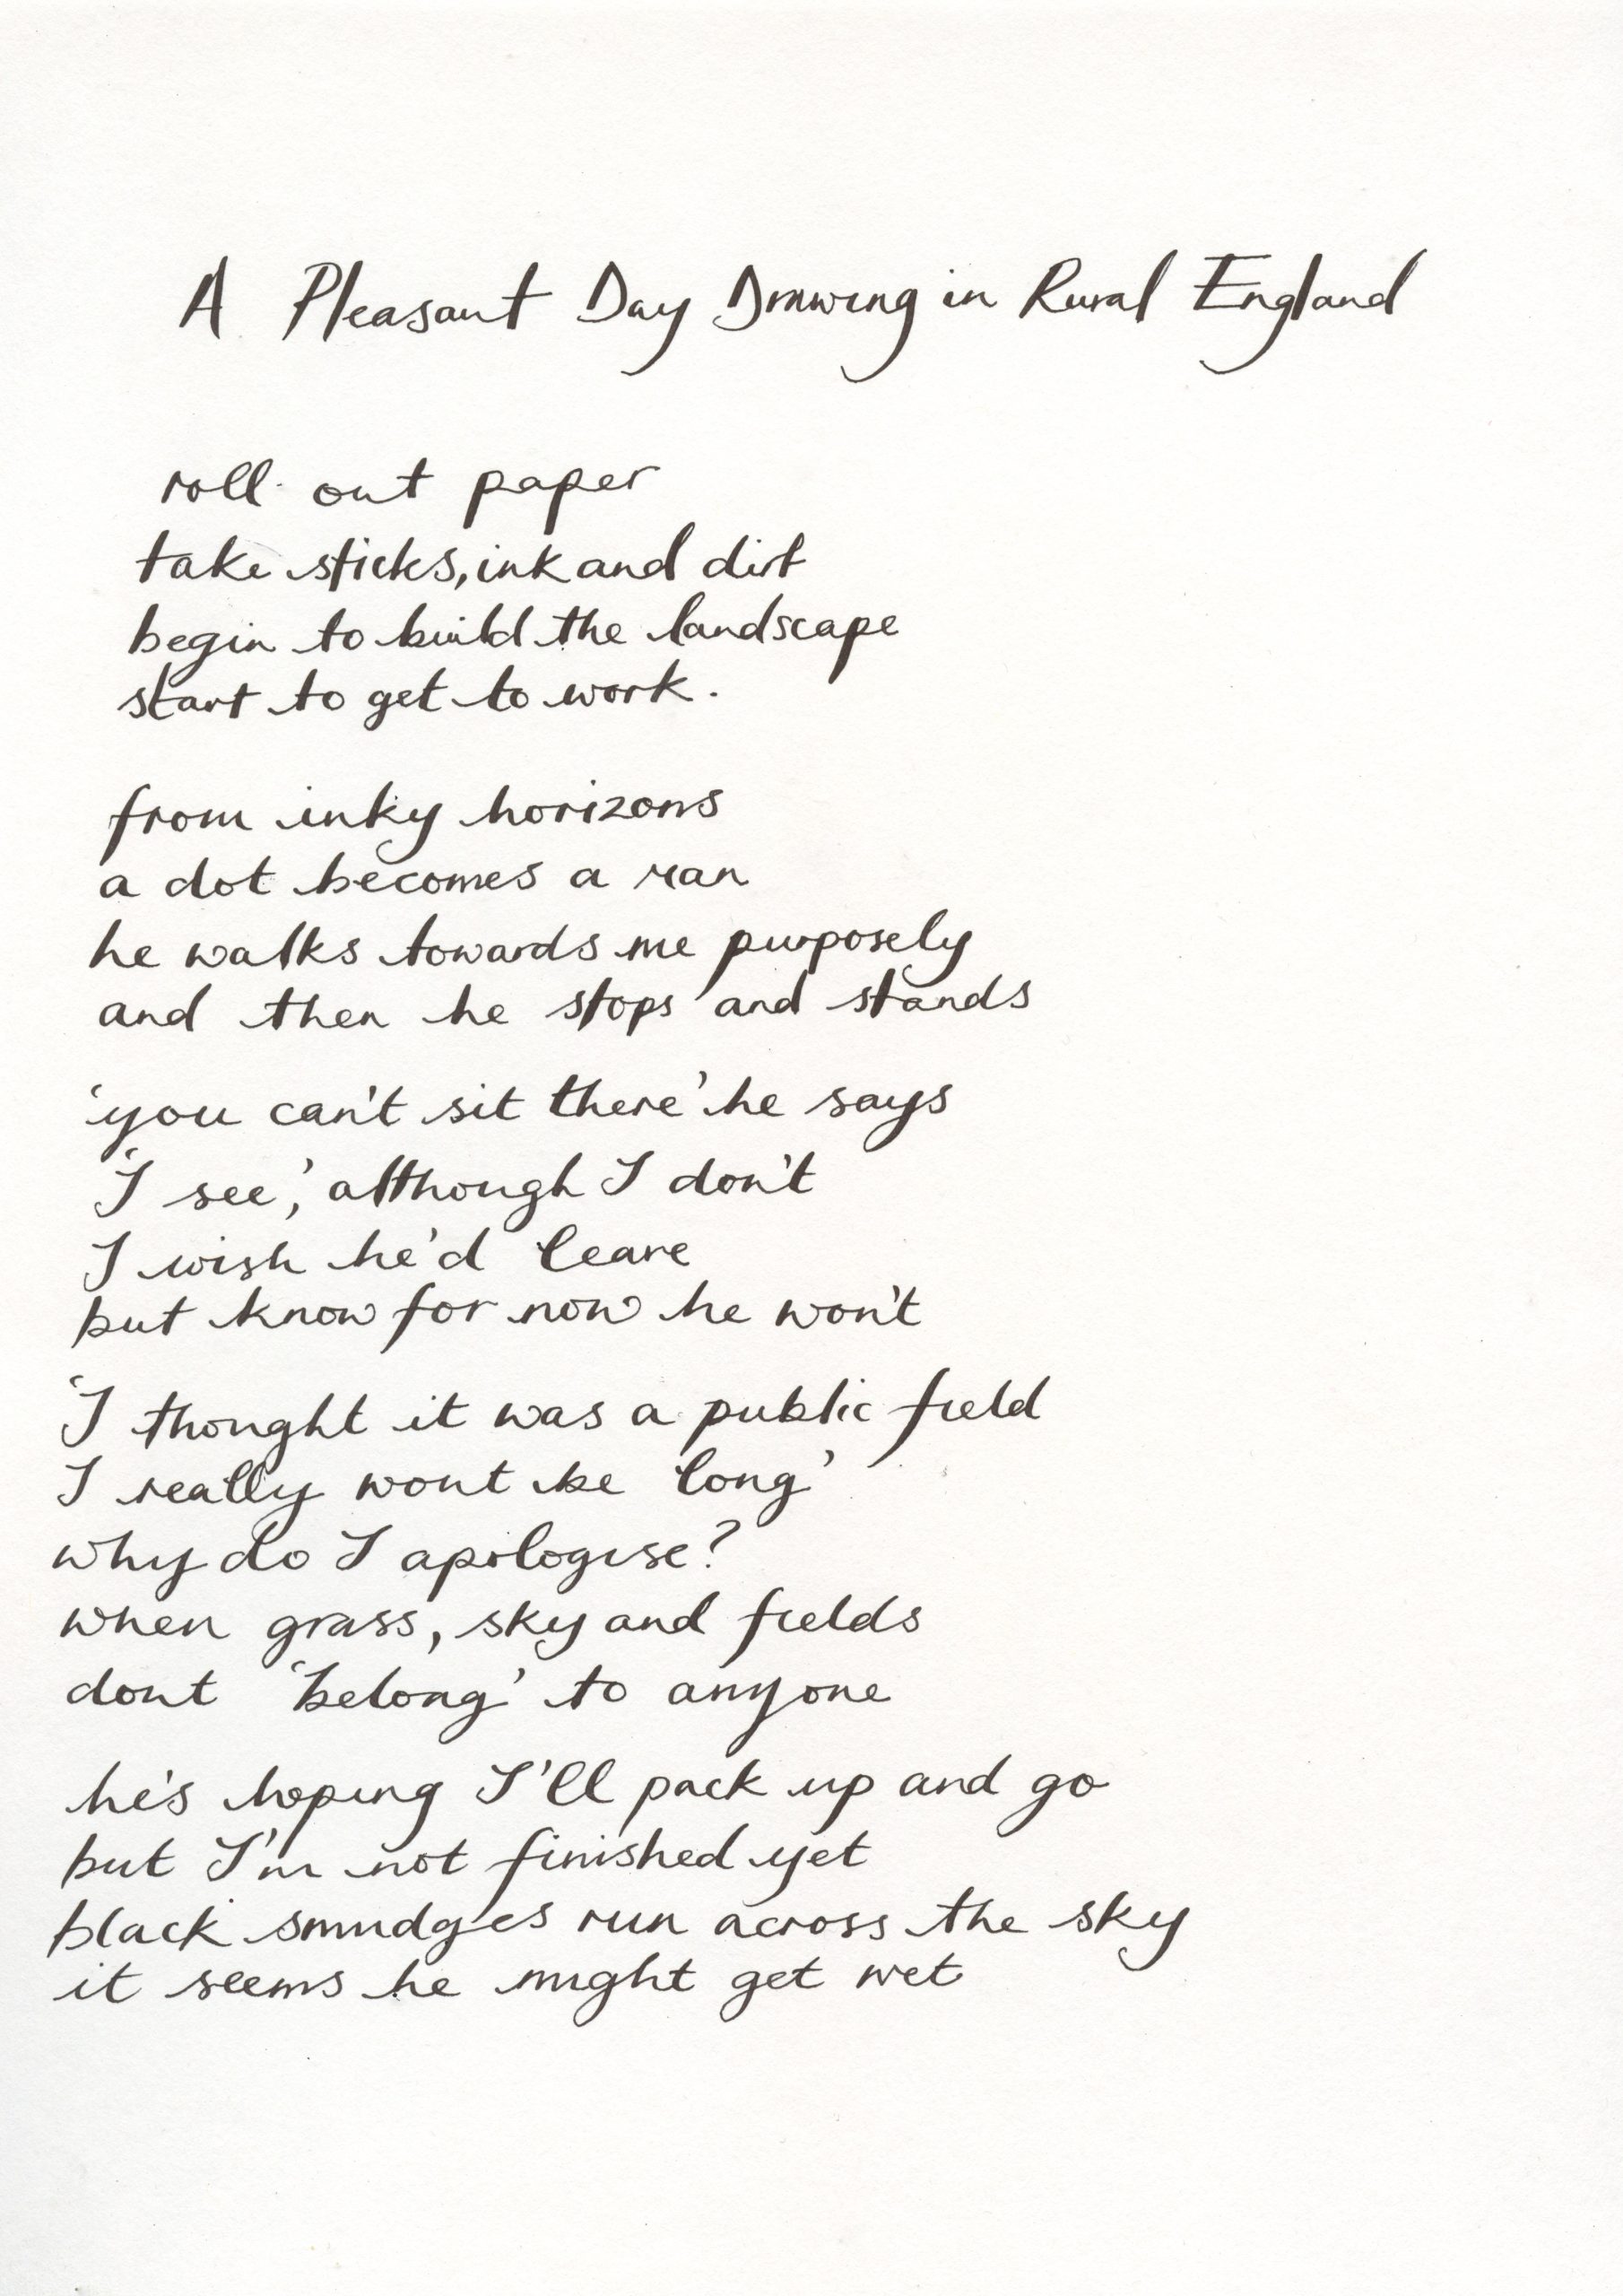 A Pleasant Day Drawing in Rural England
roll out paper
take sticks, ink and dirt
begin to build the landscape
start to get to work.
from inky horizons
a dot becomes a man
he walks towards me purposely
and then he stops and stands
'you can't sit there' he says
'I see,' although I don't
I wish he'd leave
but know for now he won't
'I thought it was a public field
I really wont be long'
why do I apologise?
when grass, sky and fields
dont 'belong' to anyone
he's hoping I'll pack up and go
but I'm not finished yet
black smudges run across the sky
it seems he might get wet